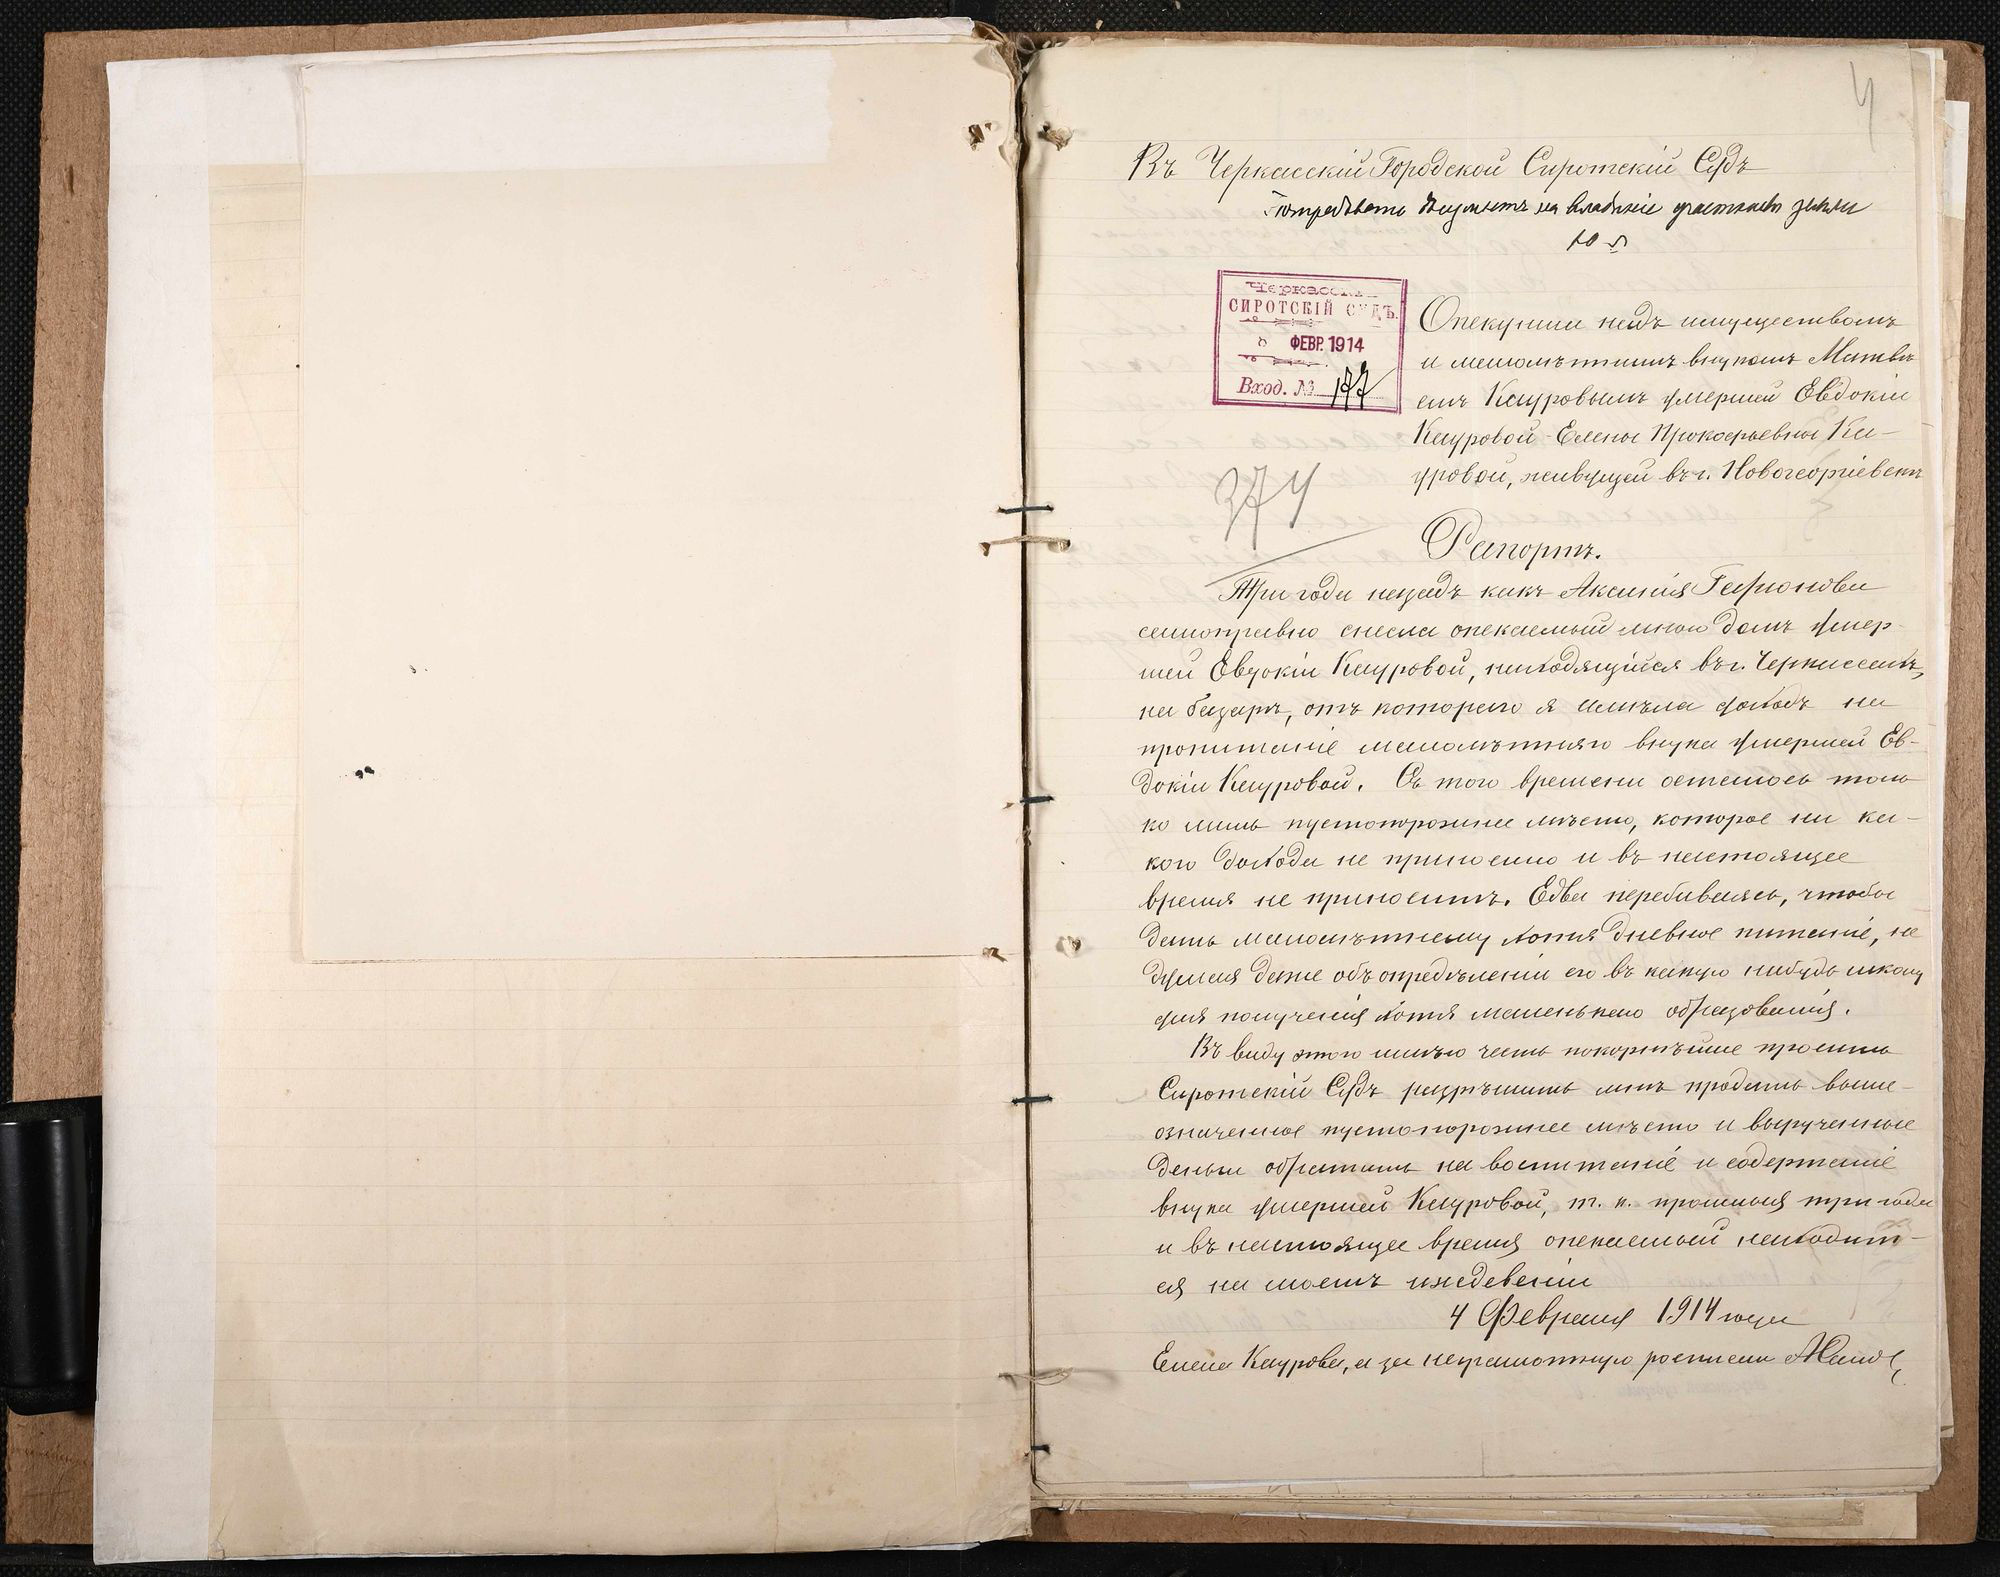 4
Въ Черкасскій Городской Сиротскій Судъ
Потребовать документъ на владѣніе участкомъ земли
Черкасск
СИРОТСКІЙ СУДЪ.
ФЕВР. 1914
Вход. № 177
Опекунши надъ имуществомъ
и малолѣтнимъ внукомъ Матвѣ
емъ Кауровымъ умершей Евдокіи
Кауровой - Елены Прокофьевны Ка-
уровой, живущей въ г. Новогеоргіевскѣ
374
Рапортъ.
Три года назадъ какъ Аксинія
самоправно снесла опекаемый мною домъ умер-
шей Евдокіи Кауровой, находящійся въ г. Черкассахъ,
на базарѣ, отъ котораго я имѣла доходъ на
пропитаніе малолѣтняго внука умершей Ев-
докіи Кауровой. Съ того времени осталось толь
ко лишь пустопорожнее мѣсто, которое ни ка-
кого дохода не приносило и въ настоящее
время не приноситъ. Едва перебиваясь, чтобы
дать малолѣтнему хотя дневное питаніе, не
думая даже объ опредѣленіи его въ какую нибудь школу
для полученія хотя маленькаго образованія.
Въ виду этого имѣю честь покорнѣйше просить
Сиротскій Судъ разрѣшить мнѣ продать выше-
означенное пустопорожнее мѣсто и вырученные
деньги обратить на воспитаніе и содержаніе
внука умершей Кауровой, т. к. прошлыя три года
и въ настоящее время опекаемый находит-
ся на моемъ иждевеніи
4 Февраля 1914 года
Елена Каурова, а за неграмотную росписался